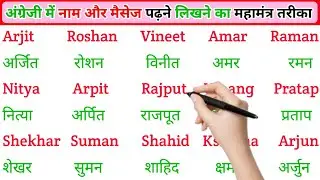 अंग्रेजी में नाम और मैसेज पढ़ने लिखने का महामंत्र तरीका
Arjit Roshan Vineet Amar Raman
अर्जित रोशन विनीत अमर रमन
Nitya Arpit Rajput Pratap
नित्या अर्पित राजपूत प्रताप
Shekhar Suman Shahid Arjun
शेखर सुमन शाहिद अर्जुन